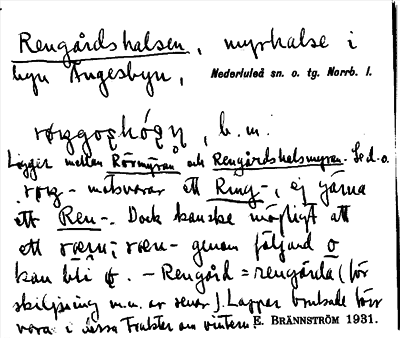 Rengårdshalsen, myrhalse i
byn Ängesbyn, Nederluleå sn. o. tg. Norrb. l.
b. m.
Ligger mellan Rörmyran och Rengårdshalsmyran. Se d. o.
motsvarar ett Ring-, ej gärna
ett Ren-. Dock kanske möjligt att
ett genom följand o
kan bli – Rengård = rengärda (för
skiljning m.m. av renar). Lappar brukade förr
vara i dessa Trakter om vintern E. BRÄNNSTRÖM 1931.